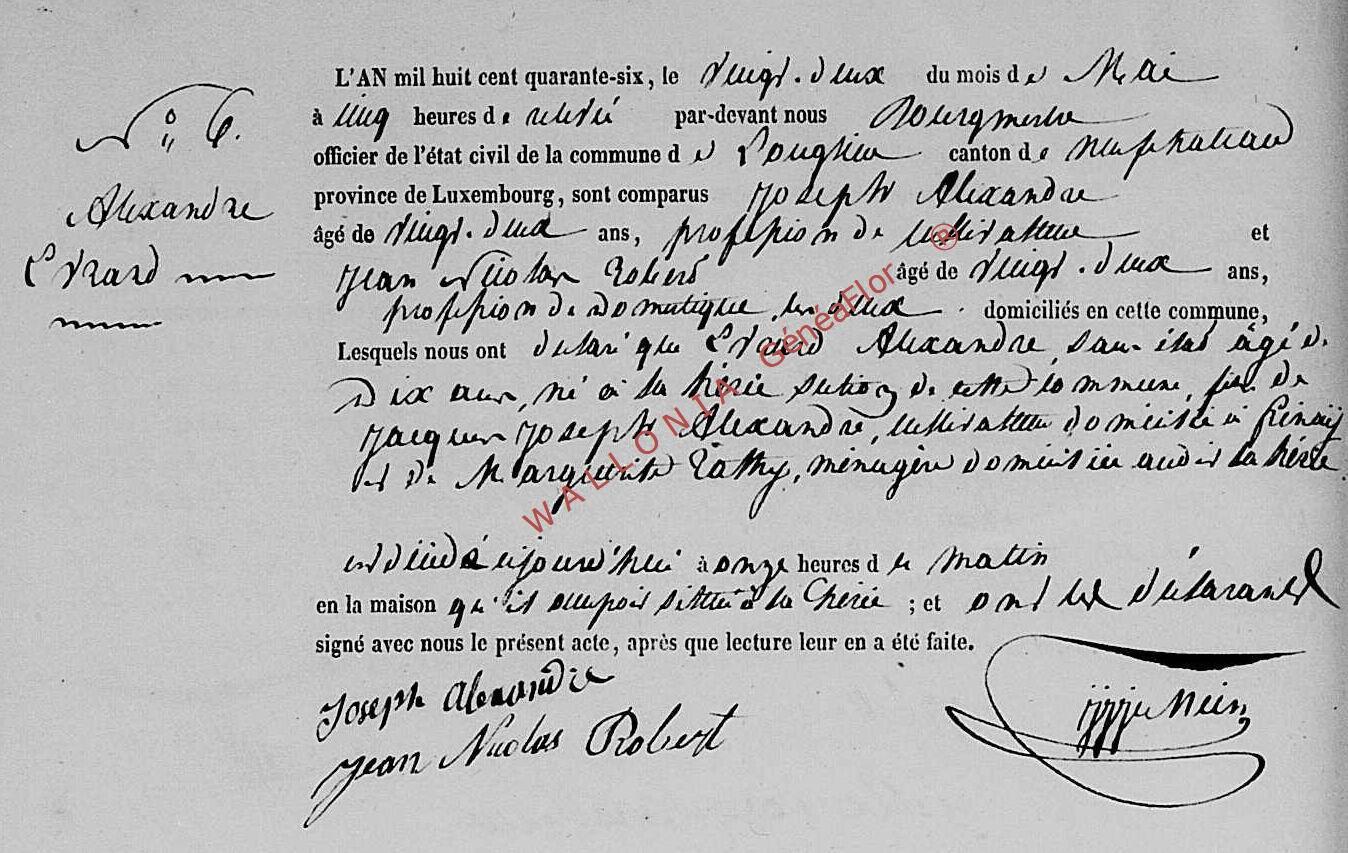 N° 6.
Alexandre
Evrard
L'AN mil huit cent quarante-six, le vingt-deux du mois de Mai
à cinq heures de relevé par-devant nous Bourgmestre
officier de l'état civil de la commune de Longlier canton de Neufchateau
province de Luxembourg, sont comparus Joseph Alexandre
âgé de vingt-deux ans, profession de cultivateur et
Jean Nicolas Robert âgé de vingt-deux ans,
profession de domestique, les deux domiciliés en cette commune,
Lesquels nous ont déclaré que Evrard Alexandre, sans état âgé de
Dix ans, né à la hérie section de cette commune, fils de
Jacques Joseph Alexandre, cultivateur domicilié à
et de Marguerite, ménagère domiciliée audit la hérie
est décédé aujourd'hui à onze heures de matin
en la maison qu'il occupoit située à la hérie ; et ont les déclarants
signé avec nous le présent acte, après que lecture leur en a été faite.
Joseph Alexandre
Jean Nicolas Robert
WALLONIA GénéaFlor ®